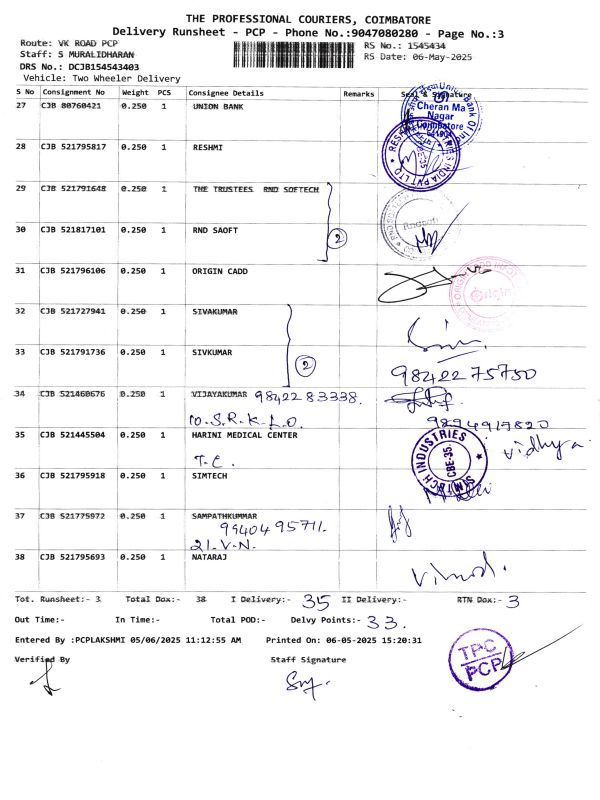 THE PROFESSIONAL COURIERS, COIMBATORE
Delivery Runsheet - PCP - Phone No.:9047080280 - Page No.:3
Route: VK ROAD PCP
Staff: S MURALIDHARAN
DRS No.: DCJB154543403
Vehicle: Two Wheeler Delivery
RS No.: 1545434
RS Date: 06-May-2025
S No Consignment No Weight PCS Consignee Details Remarks Seal & Signature
27 CJB 80760421 0.250 1 UNION BANK
Cheran Ma Nagar Coimbatore
28 CJB 521795817 0.250 1 RESHMI
29 CJB 521791648 0.250 1 THE TRUSTEES RND SOFTECH
30 CJB 521817101 0.250 1 RND SAOFT
2
31 CJB 521796106 0.250 1 ORIGIN CADD
Origin
32 CJB 521727941 0.250 1 SIVAKUMAR
33 CJB 521791736 0.250 1 SIVKUMAR
2
98422 75750
34 CJB 521460676 0.250 1 VIJAYAKUMAR 98422 83338.
10.S.R.K.L.O.
9894917820
35 CJB 521445504 0.250 1 HARINI MEDICAL CENTER
vidhya.
T.C.
36 CJB 521795918 0.250 1 SIMTECH
SIMTECH INDUSTRIES CBE-35.
37 CJB 521775972 0.250 1 SAMPATHKUMMAR
99404 95711.
21.V.N.
38 CJB 521795693 0.250 1 NATARAJ
Vinod.
Tot. Runsheet:- 3 Total Dox:- 38 I Delivery:- 35 II Delivery:- RTN Dox:- 3
Out Time:- In Time:- Total POD:- Delvy Points:- 33.
Entered By :PCPLAKSHMI 05/06/2025 11:12:55 AM Printed On: 06-05-2025 15:20:31
Verified By Staff Signature
TPC
PCP